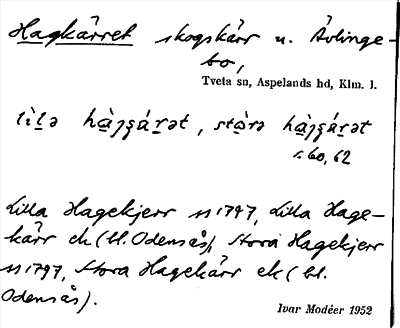 Hagkärret skogskärr u. Ävlinge-
bo,
Tveta sn, Aspelands hd, Klm. l.
lìlə hàgʒárət, stòrə hàgʒárət
s. 60, 62
Lilla Hagekjerr 1797, Lilla Hage-
kärr ek (bl. Odensås), Stora Hagekjerr
1797, Stora Hagekärr ek (bl.
Odensås).
Ivar Modéer 1952